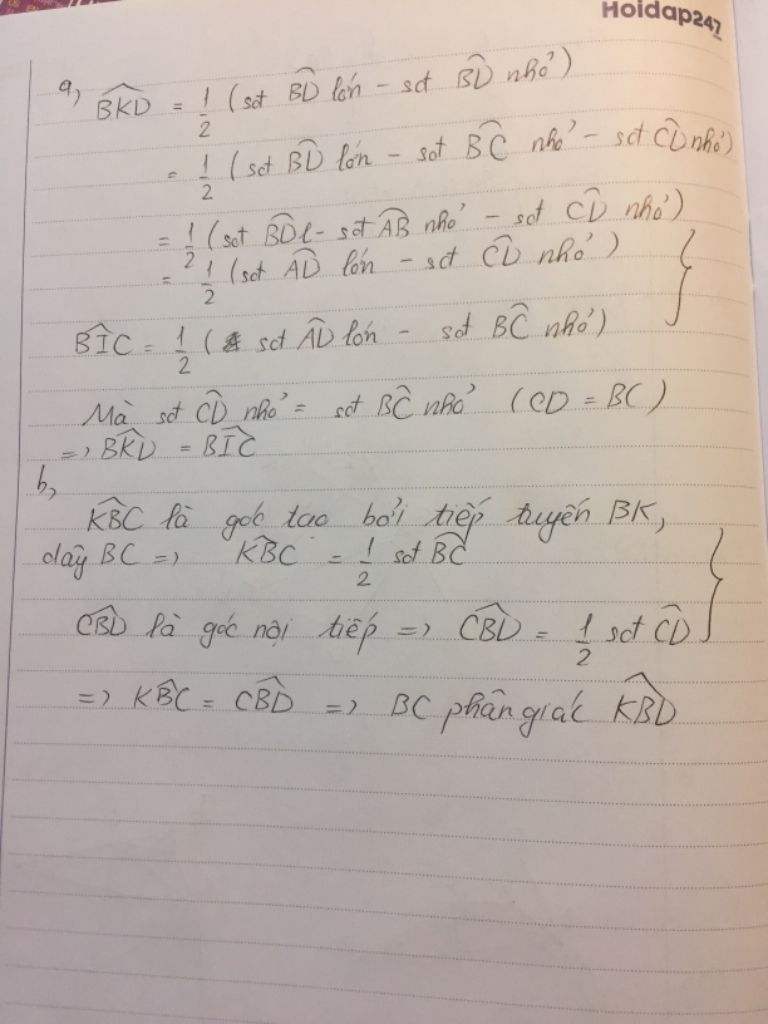 Hoidap247
a, \widehat{BKD} = \frac{1}{2} (sđt \overset{\frown}{BD} lớn - sđt \overset{\frown}{BD} nhỏ)
= \frac{1}{2} (sđt \overset{\frown}{BD} lớn - sđt \overset{\frown}{BC} nhỏ - sđt \overset{\frown}{CD} nhỏ)
= \frac{1}{2} (sđt \overset{\frown}{BD} l - sđt \overset{\frown}{AB} nhỏ - sđt \overset{\frown}{CD} nhỏ)
= \frac{1}{2} (sđt \overset{\frown}{AD} lớn - sđt \overset{\frown}{CD} nhỏ) }
\widehat{BIC} = \frac{1}{2} (sđt \overset{\frown}{AD} lớn - sđt \overset{\frown}{BC} nhỏ)
Mà sđt \overset{\frown}{CD} nhỏ = sđt \overset{\frown}{BC} nhỏ (CD = BC)
=> \widehat{BKD} = \widehat{BIC}
b,
\widehat{KBC} là góc tạo bởi tiếp tuyến BK,
dây BC => \widehat{KBC} = \frac{1}{2} sđt \overset{\frown}{BC}
\widehat{CBD} là góc nội tiếp => \widehat{CBD} = \frac{1}{2} sđt \overset{\frown}{CD} }
=> \widehat{KBC} = \widehat{CBD} => BC phân giác \widehat{KBD}